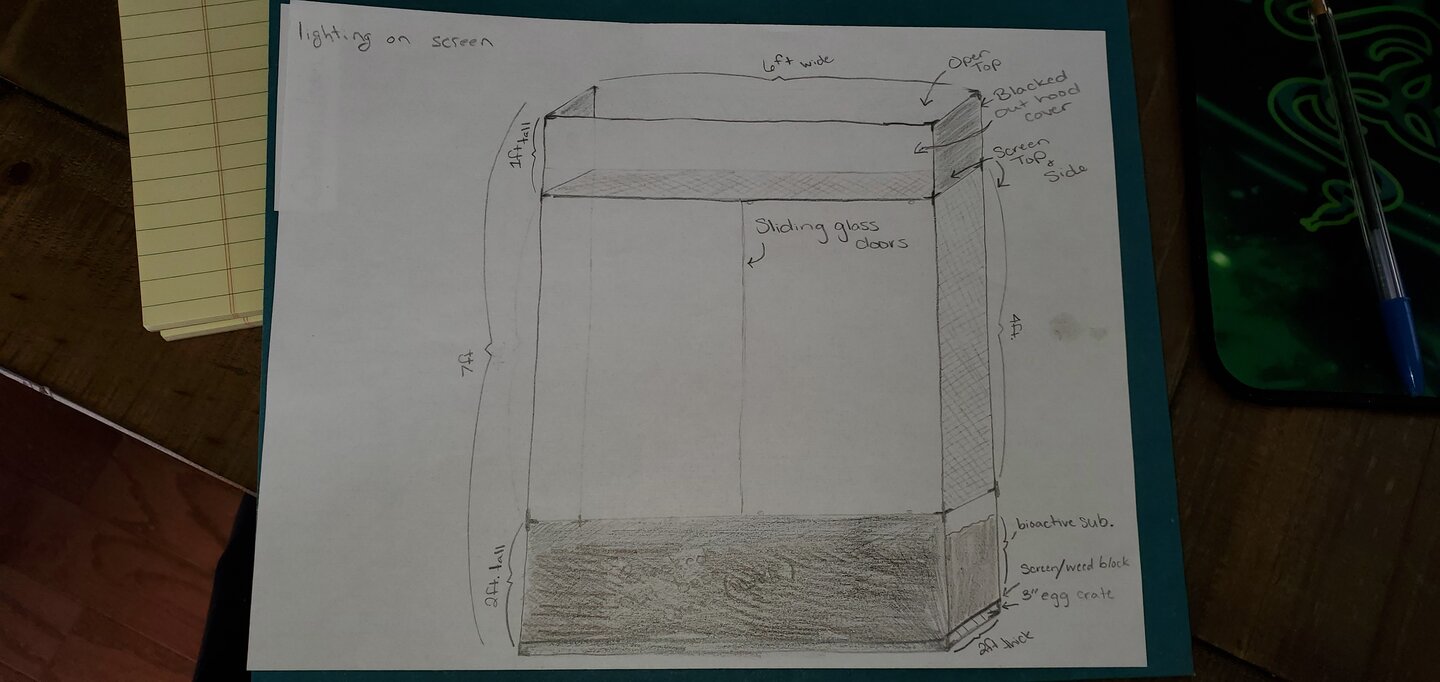 lighting on screen
6ft wide
Open
Top
Blacked
out hood
cover
1ft tall
Screen
Top &
Side
Sliding glass
doors
7ft
4ft
2ft. tall
bioactive sub.
Screen/weed block
3" egg crate
2ft thick